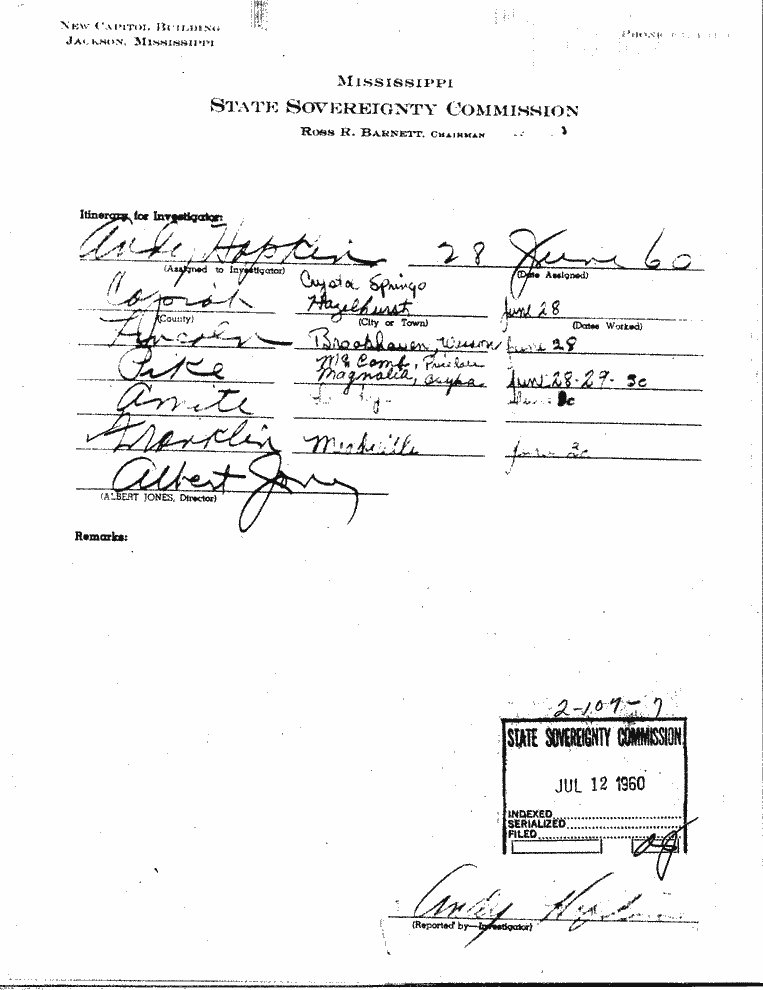 New Capitol Building
Jackson, Mississippi
Phone
Mississippi
State Sovereignty Commission
Ross R. Barnett, Chairman
Itinerary for Investigator:
Andy Hopkins 28 June 60
(Assigned to Investigator) (Date Assigned)
Crystal Springs
Copiah Hazelhurst June 28
(County) (City or Town) (Dates Worked)
Lincoln Brookhaven, Wesson June 28
McComb,
Pike Magnolia, Osyka June 28-29-30
Amite June 30
Franklin Meadville June 30
Albert Jones
(ALBERT JONES, Director)
Remarks:
2-107-7
STATE SOVEREIGNTY COMMISSION
JUL 12 1960
INDEXED
SERIALIZED
FILED
aj
Andy Hopkins
(Reported by—Investigator)